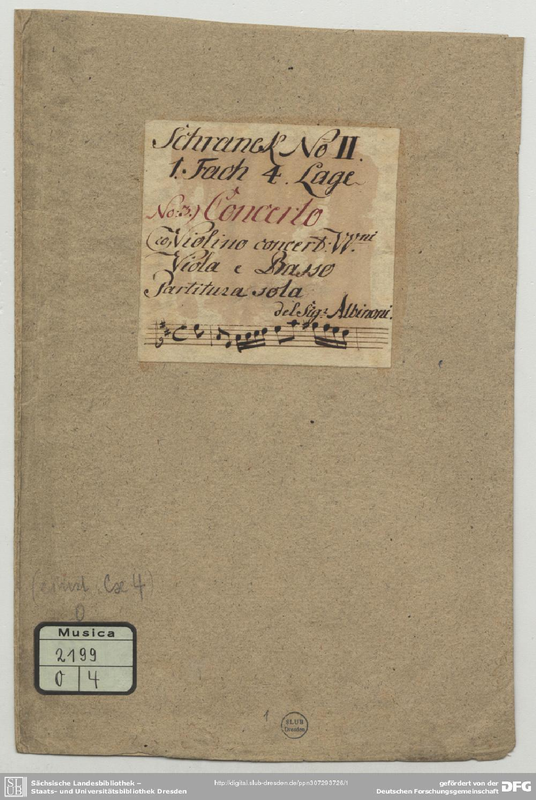 Schranck No II.
1. Fach 4. Lage
No: 3.) Concerto
co Violino concert: VV.ni
Viola e Basso
Partitura sola
del Sig: Albinoni.
4
0
Musica
2199
O 4
1
SLUB
Dresden
SLUB
Sächsische Landesbibliothek –
Staats- und Universitätsbibliothek Dresden
http://digital.slub-dresden.de/ppn307293726/1
gefördert von der
Deutschen Forschungsgemeinschaft
DFG